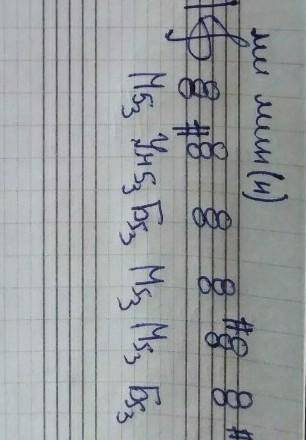 ми мин(н)
М53 Ум53 Б53 М53 М53 Б53